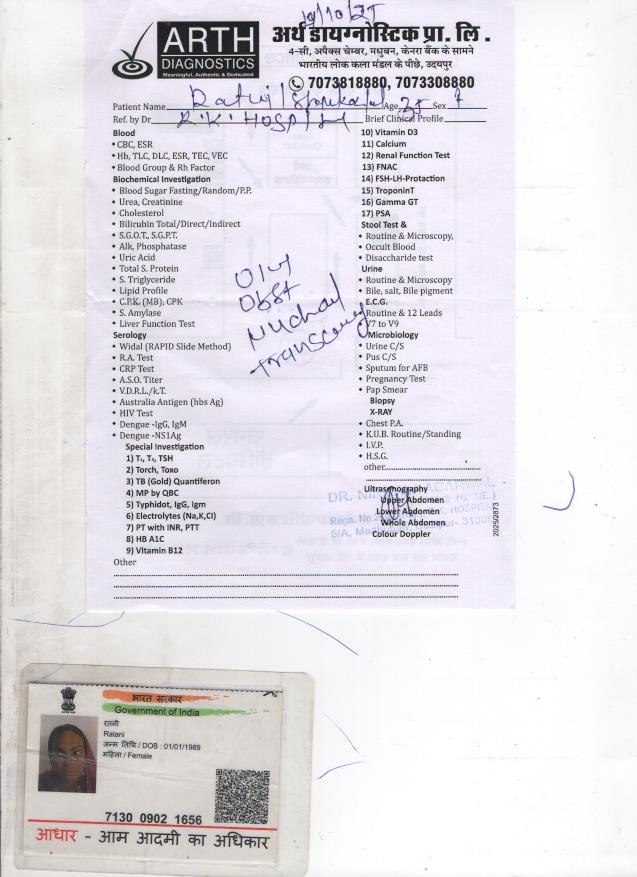 9/10/25
ARTH
DIAGNOSTICS
Meaningful, Authentic & Dedicated
अर्थ डायग्नोस्टिक प्रा. लि .
4-सी, अपैक्स चेम्बर, मधुबन, केनरा बैंक के सामने
भारतीय लोक कला मंडल के पीछे, उदयपुर
7073818880, 7073308880
Patient Name Age 35 Sex F
Ref. by Dr R.K. HOSPITAL Brief Clinical Profile
Blood
• CBC, ESR
• Hb, TLC, DLC, ESR, TEC, VEC
• Blood Group & Rh Factor
Biochemical Investigation
• Blood Sugar Fasting/Random/P.P.
• Urea, Creatinine
• Cholesterol
• Bilirubin Total/Direct/Indirect
• S.G.O.T., S.G.P.T.
• Alk, Phosphatase
• Uric Acid
• Total S. Protein
• S. Triglyceride
• Lipid Profile
• C.P.K. (MB), CPK
• S. Amylase
• Liver Function Test
Serology
• Widal (RAPID Slide Method)
• R.A. Test
• CRP Test
• A.S.O. Titer
• V.D.R.L./k.T.
• Australia Antigen (hbs Ag)
• HIV Test
• Dengue -IgG, IgM
• Dengue -NS1Ag
Special Investigation
1) T₃, T₄, TSH
2) Torch, Toxo
3) TB (Gold) Quantiferon
4) MP by QBC
5) Typhidot, IgG, Igm
6) Electrolytes (Na,K,Cl)
7) PT with INR, PTT
8) HB A1C
9) Vitamin B12
Other
10) Vitamin D3
11) Calcium
12) Renal Function Test
13) FNAC
14) FSH-LH-Protaction
15) TroponinT
16) Gamma GT
17) PSA
Stool Test &
• Routine & Microscopy,
• Occult Blood
• Disaccharide test
Urine
• Routine & Microscopy
• Bile, salt, Bile pigment
E.C.G.
• Routine & 12 Leads
• V7 to V9
Microbiology
• Urine C/S
• Pus C/S
• Sputum for AFB
• Pregnancy Test
• Pap Smear
Biopsy
X-RAY
• Chest P.A.
• K.U.B. Routine/Standing
• I.V.P.
• H.S.G.
other
Ultrasmography
Upper Abdomen
Lower Abdomen
Whole Abdomen
Colour Doppler
2025/2873
Obst
Nuchal
DR. AGARWAL
Regn. No. HOSPITAL
5/A, Udaipur-
भारत सरकार
Government of India
रतनी
Ratani
जन्म तिथि / DOB : 01/01/1989
महिला / Female
7130 0902 1656
आधार - आम आदमी का अधिकार